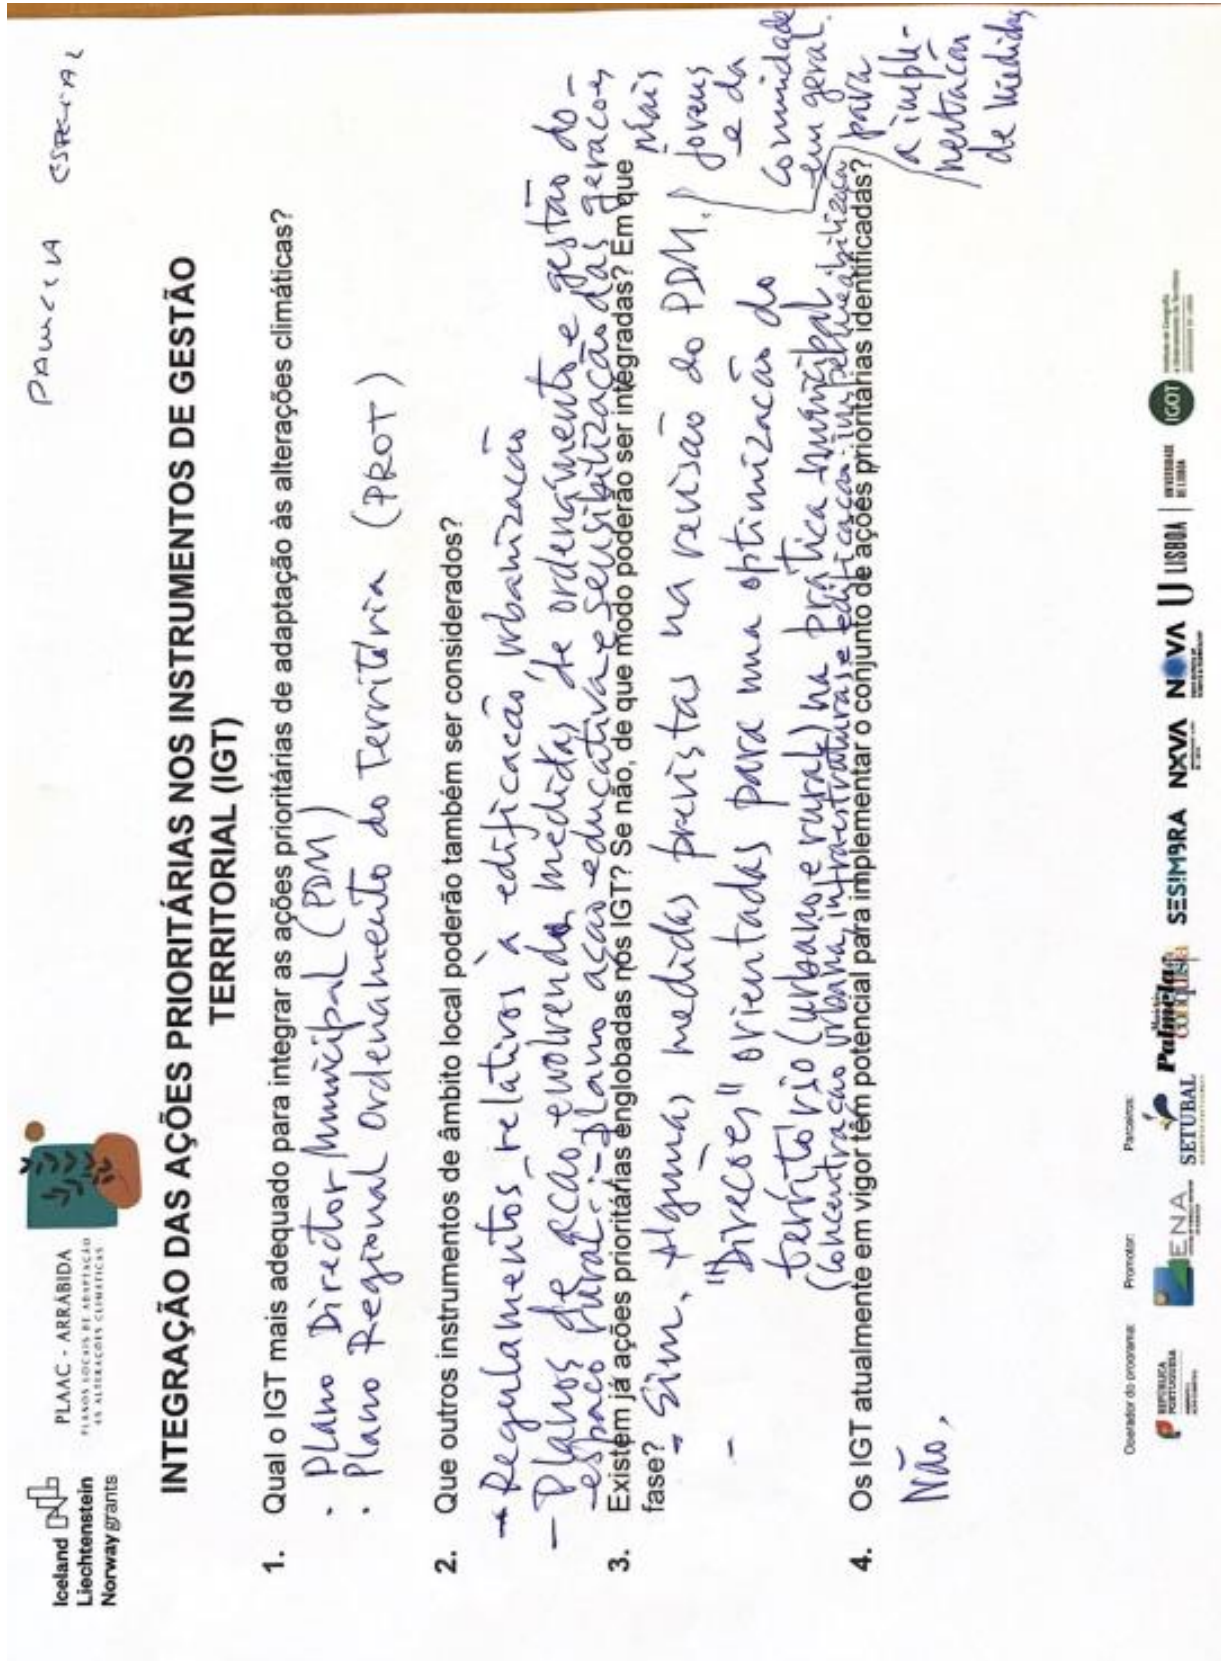 PALMELA ESPECIAL
Iceland
Liechtenstein
Norway grants
PLAAC - ARRÁBIDA
PLANOS LOCAIS DE ADAPTAÇÃO
ÀS ALTERAÇÕES CLIMÁTICAS
INTEGRAÇÃO DAS AÇÕES PRIORITÁRIAS NOS INSTRUMENTOS DE GESTÃO
TERRITORIAL (IGT)
1. Qual o IGT mais adequado para integrar as ações prioritárias de adaptação às alterações climáticas?
· Plano Director Municipal (PDM)
· Plano Regional Ordenamento do Território (PROT)
2. Que outros instrumentos de âmbito local poderão também ser considerados?
- Regulamentos relativos à edificação, urbanização
- Planos de acção envolvendo medidas de ordenamento e gestão do
espaço rural; - Plano ação educativa e sensibilização das gerações
mais
jovens
e da
comunidade
em geral.
para
a imple-
mentação
de medidas
3. Existem já ações prioritárias englobadas nos IGT? Se não, de que modo poderão ser integradas? Em que
fase?
- Sim, Algumas medidas previstas na revisão do PDM.
- "Direcções" orientadas para uma optimização do
território (urbano e rural) na prática municipal
(concentração urbana, infraestruturas e edificação; impermeabilização
4. Os IGT atualmente em vigor têm potencial para implementar o conjunto de ações prioritárias identificadas?
Não,
Operador do programa:
Promotor:
Parceiros:
REPÚBLICA
PORTUGUESA
ENA
SETÚBAL
Município
Palmela
conquista
SESIMBRA
NOVA
NOVA
U LISBOA
UNIVERSIDADE
DE LISBOA
IGOT